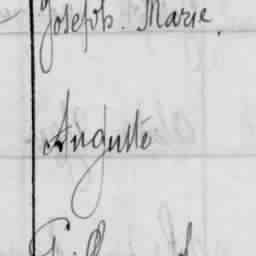 Joseph. Marie.
Auguste